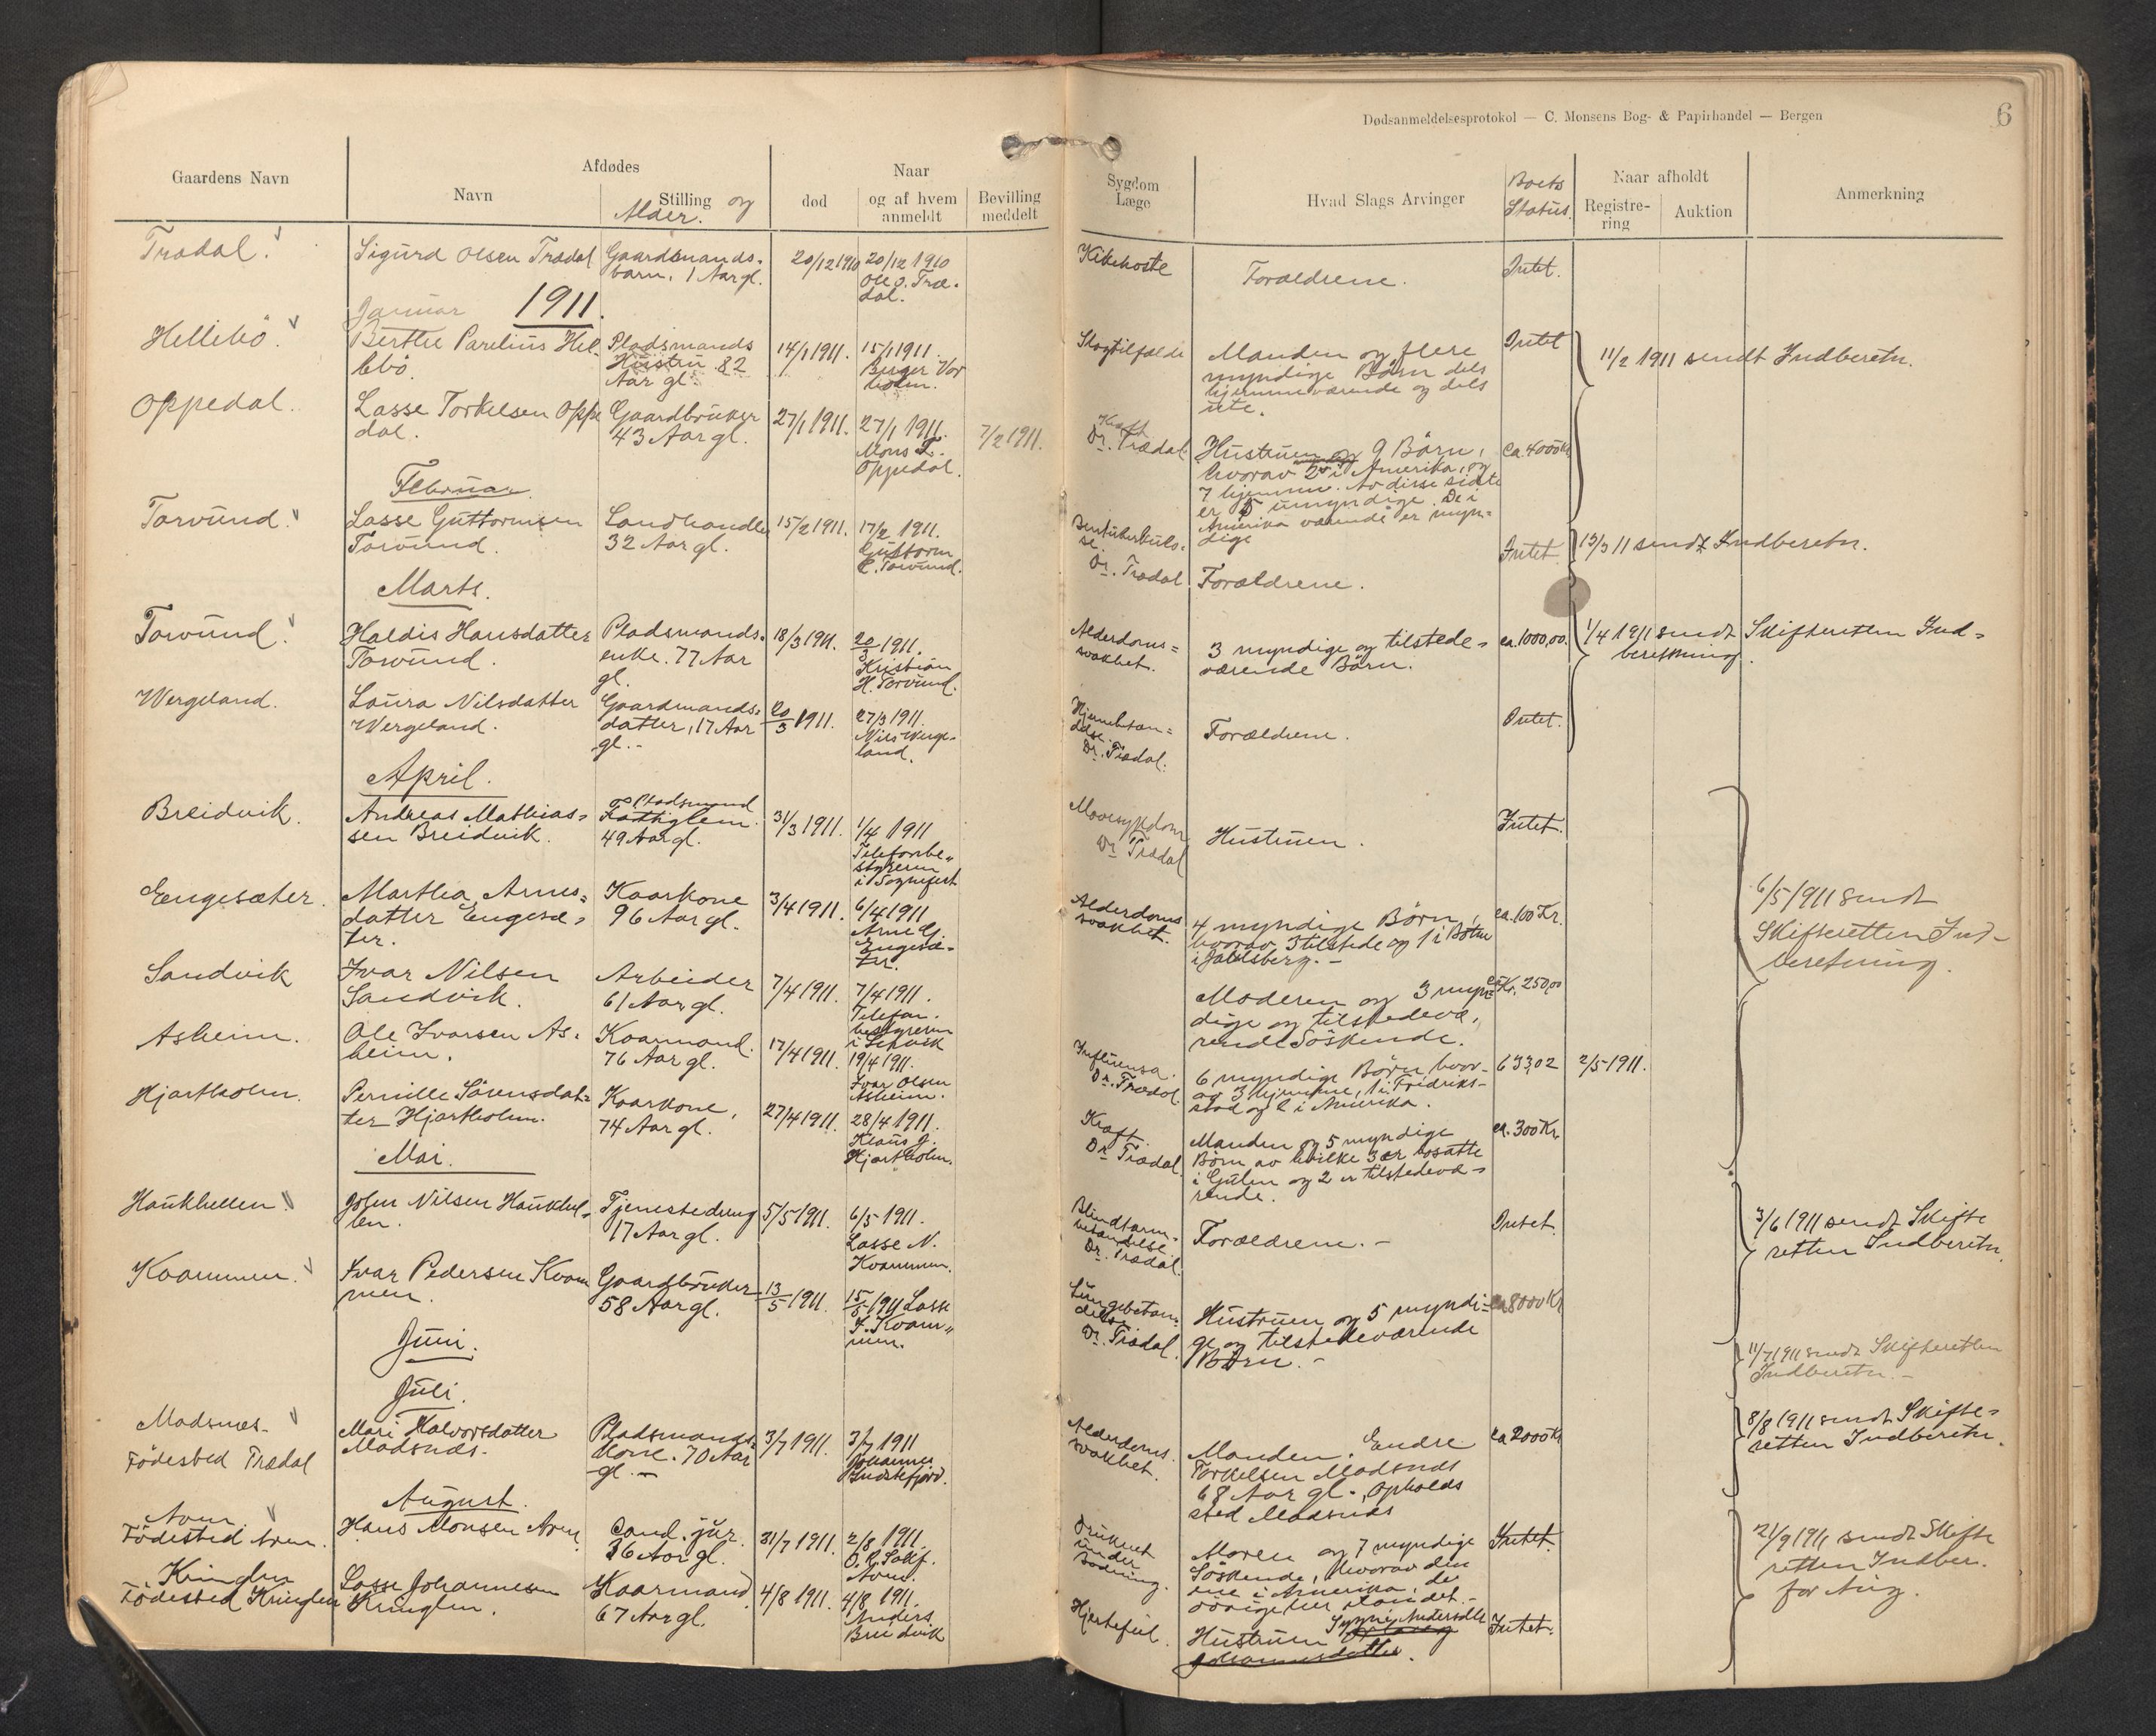 Dødsanmeldelsesprotokol — C. Monsens Bog- & Papirhandel — Bergen
6
Gaardens Navn
Afdødes
Navn
Stilling og
Alder.
Naar
død
og af hvem
anmeldt
Bevilling
meddelt
Sygdom
Læge
Hvad Slags Arvinger
Boets
Status.
Naar afholdt
Registre-
ring
Auktion
Anmerkning
Trædal.
Sigurd Olsen Trædal
Gaardsmands-
barn. 1 Aar gl.
20/12 1910
20/12 1910
Ole O. Træ-
dal.
Kikhoste
Forældrene.
Intet.
Januar 1911.
Hellebö.
Berthe Parelius Hel-
lebö
Pladsmands
Hustru 82
Aar gl.
14/1 1911.
15/1 1911.
Birger
Slagtilfælde
Manden og flere
myndige Børn dels
hjemmeværende og dels
ute.
Intet
11/2 1911 sendt Indberetn.
Oppedal.
Lasse Torkelsen Oppe
dal.
Gaardbruker
43 Aar gl.
27/1 1911.
27/1 1911.
Mons T.
Oppedal.
7/2 1911.
Kræft
Dr. Trædal
Hustruen og 9 Børn,
hvorav 2 i Amerika, og
7 hjemme. Av disse sidste
er 5 umyndige. De i
Amerika værende er myn-
dige
ca. 4000 Kr
Februar
Torvund.
Lasse Guttormsen
Torvund.
Landhandler
32 Aar gl.
15/2 1911.
17/2 1911.
Guttorm
L. Torvund.
Bentuberkulo-
se.
Dr. Trædal
Forældrene.
Intet
13/3 11 sendt Indberetn.
Marts.
Torvund.
Haldis Hansdatter
Torvund.
Pladsmands-
enke. 77 Aar
gl.
18/3 1911.
20/3 1911.
Kristian
H. Torvund.
Alderdoms-
svakhet.
3 myndige og tilstede-
værende Børn.
ca. 1000,00.
1/4 1911 sendt Skifteretten Ind-
beretning.
Wergeland.
Laura Nilsdatter
Wergeland.
Gaardmands-
datter, 17 Aar
gl.-
20/3 1911.
27/3 1911.
Nils Werge-
land.
Hjernebetæn-
delse.
Dr. Trædal.
Forældrene.
Intet.
April.
Breidvik.
Andreas Mathias-
sen Breidvik.
Pladsmand
Fattiglem.
49 Aar gl.
31/3 1911.
1/4 1911
Telefonbe-
styreren
i Sognefest
Mavesygdom
Dr Trædal
Hustruen.
Intet.
Engesæter.
Marthea Arnes-
datter Engesæ-
ter.
Kaarkone
96 Aar gl.
3/4 1911.
6/4 1911
Arne G.
Engesæ-
ter.
Alderdoms
svakhet.
4 myndige Børn,
hvorav 3 tilstede og 1 i Botne
i Jarlsberg.-
ca. 100 Kr.
6/5 1911 sendt
Skifteretten Ind-
beretning.
Sandvik
Ivar Nilsen
Sandvik.
Arbeider
61 Aar gl.
7/4 1911.
7/4 1911.
Telefon-
bestyreren
i Leirvik
Moderen og 3 myn-
dige og tilstedevæ-
rende Söskende.
ca Kr. 250,00
Asheim.
Ole Ivarsen As-
heim.
Kaarmand.
76 Aar gl.
17/4 1911.
19/4 1911.
Ivar Olsen
Asheim.
Influensa.
Dr. Trædal.
6 myndige Børn, hvor-
av 3 hjemme, 1 i Fredrik-
stad og 2 i Amerika.
633,02
2/5 1911.
Hjartholm.
Pernille Sörensdat-
ter Hjartholm.
Kaarkone,
74 Aar gl.
27/4 1911.
28/4 1911.
Klaus J.
Hjartholm.
Kræft.
Dr Trædal.
Manden og 5 myndige
Børn av hvilke 3 er bosatte
i Gulen og 2 er tilstedevæ-
rende.
ca. 300 Kr.
Mai.
Haukhellen.
John Nilsen Haukhel-
len.
Tjenestedreng
17 Aar gl.
5/5 1911.
6/5 1911.
Lasse N.
Kvammen.
Blindtarm-
betændelse.
Dr. Trædal.
Forældrene.-
Intet.
3/6 1911 sendt Skifte
retten Indberetn.
Kvammen.
Ivar Pedersen Kvam
men.
Gaardbruker
58 Aar gl.
13/5 1911.
15/5 1911 Lasse
I. Kvam-
men.
Lungebetæn-
delse.
Dr. Trædal.
Hustruen og 5 myndi-
ge og tilstedeværende
Børn.-
ca 8000 Kr
Juni.
11/7 1911 sendt Skifteretten
Indberetn.-
Juli.
Madsnæs-
Födested Trædal
Mari Halvorsdatter
Madsnæs.
Pladsmands-
kone. 70 Aar
gl.-
3/7 1911.
3/7 1911
Johannes
Indrefjord.
Alderdoms.
svakhet.
Manden, Endre
Torkelsen Madsnæs
68 Aar gl., Opholds
sted Madsnæs
ca 2000 Kr
8/8 1911 sendt Skifte-
retten Indberetn.
August.
Aven.
Födested Aven.
Hans Monsen Aven
Cand. jur.
36 Aar gl.
31/7 1911.
2/8 1911.
Aven.
Druknet
under
Badning.
Moren og 7 myndige
Söskende, hvorav den
ene i Amerika, de
övrige her i landet.-
Intet.
21/9 1911 sendt Skifte
retten Indber.
for Aug.
Kringlen
Födested Kringlen
Lasse Johannesen
Kringlen.
Kaarmand
67 Aar gl.
4/8 1911.
4/8 1911.
Anders
Breidvik
Hjertefeil.
Hustruen Andersdtr
Johannesdatter.
Intet.